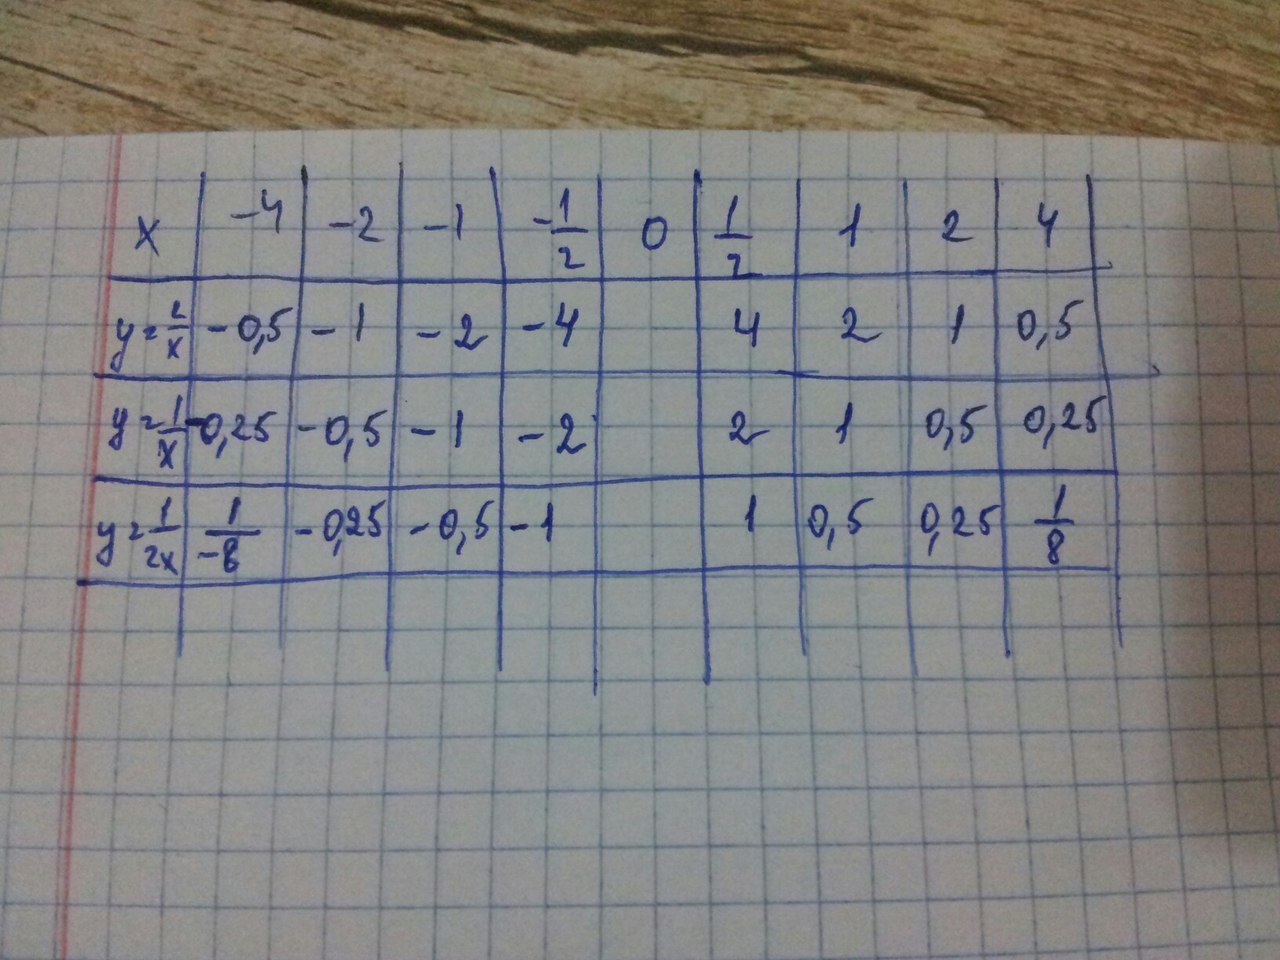 x -4 -2 -1 -1/2 0 1/2 1 2 4
y=2/x -0,5 -1 -2 -4 4 2 1 0,5
y=1/x -0,25 -0,5 -1 -2 2 1 0,5 0,25
y=1/2x 1/-8 -0,25 -0,5 -1 1 0,5 0,25 1/8